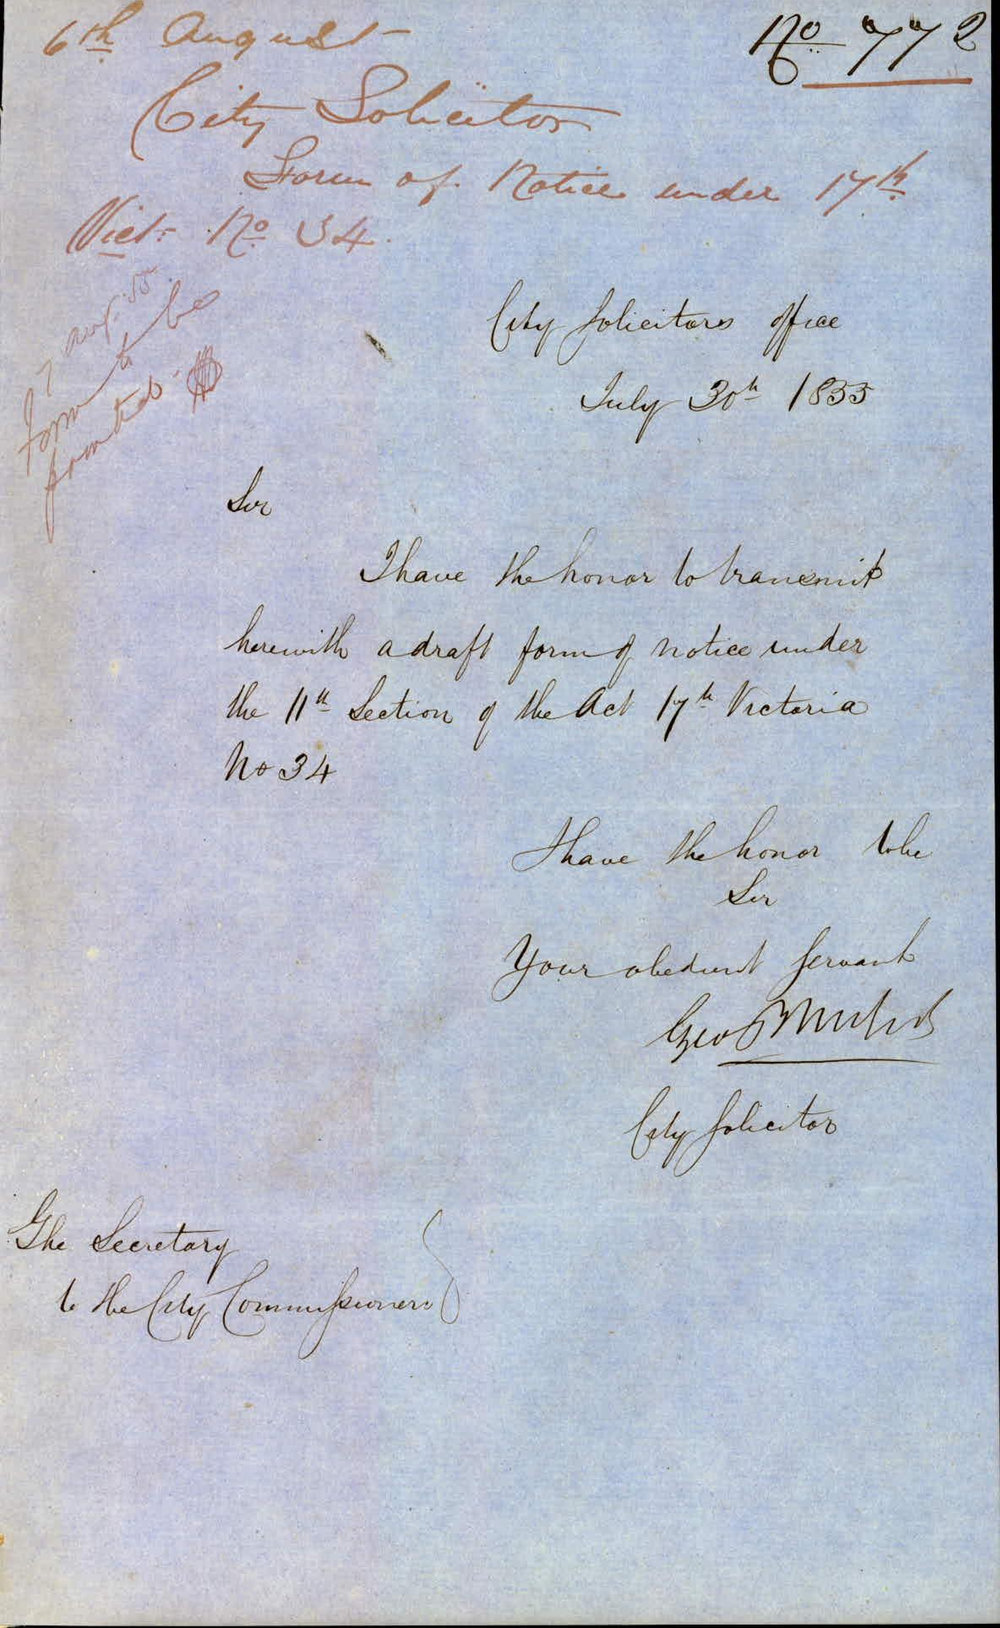 6th August
No 772
City Solicitor
Form of Notice under 17th
Vict. No 34.
7 Aug. 55.
Form to be
printed.
City Solicitors office
July 30th 1855
Sir
I have the honor to transmit
herewith a draft form of notice under
the 11th Section of the Act 17th Victoria
No 34
I have the honor to be
Sir
Your obedient Servant
Geo
City Solicitor
The Secretary
to the City Commissioners